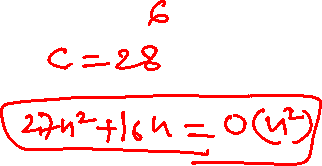 6
c = 28
27n² + 16n = O(n²)